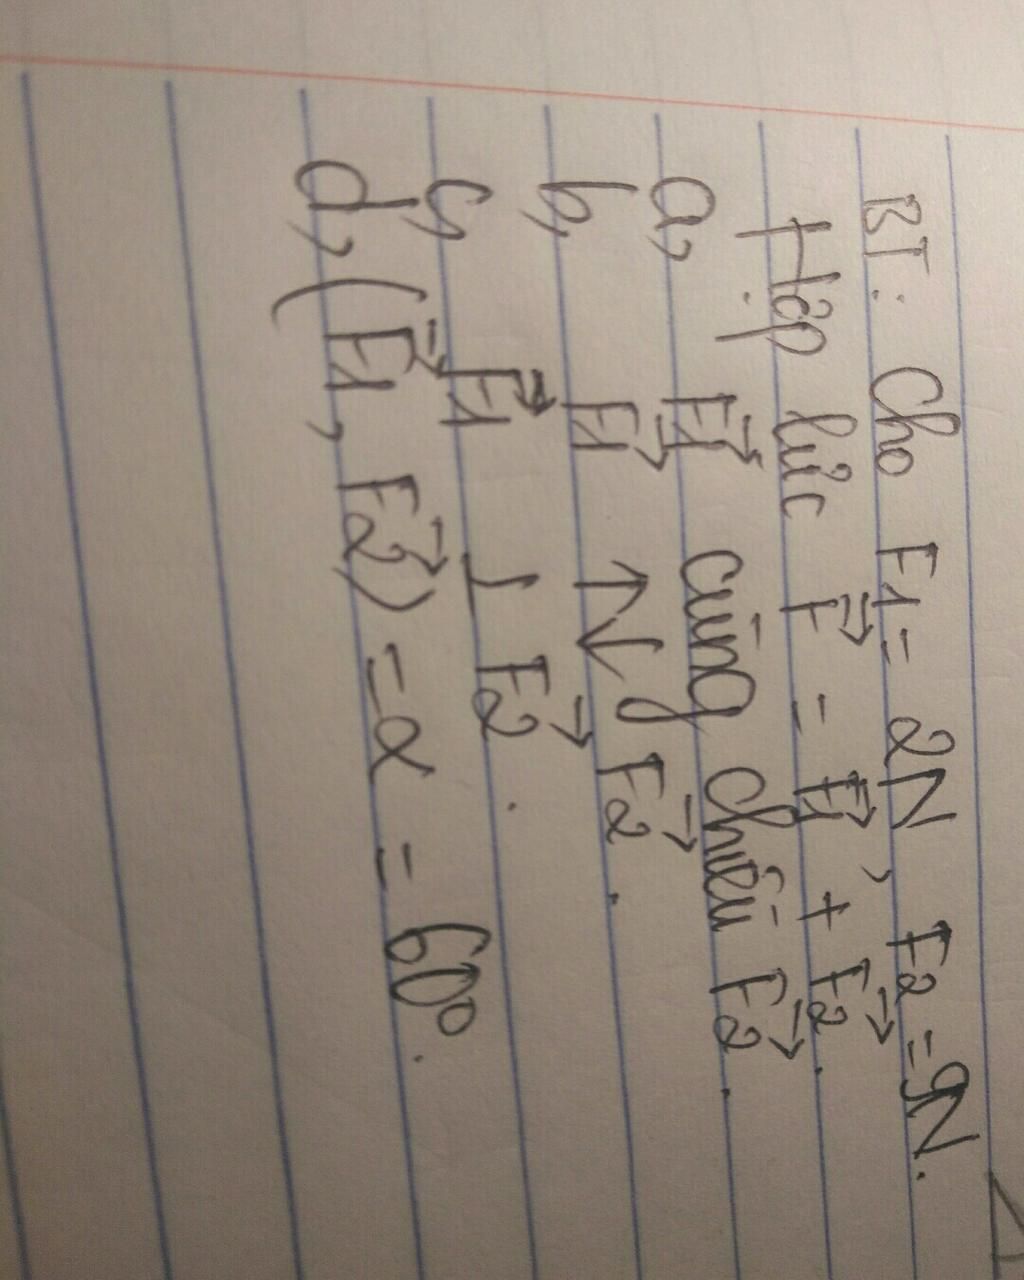 BT: Cho F1 = 2N, F2 = 9N.
Hợp lực F⃗ = F1⃗ + F2⃗.
a, F1⃗ cùng chiều F2⃗.
b, F1⃗ ↑↓ F2⃗.
c, F1⃗ ⊥ F2⃗.
d, (F1⃗, F2⃗) = α = 60°.